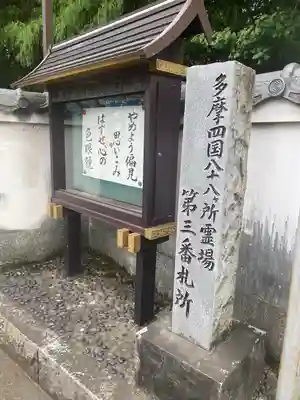 やめよう偏見
思いこみ
はずせ心の
色眼鏡
多摩四国八十八ヶ所霊場
第三番札所